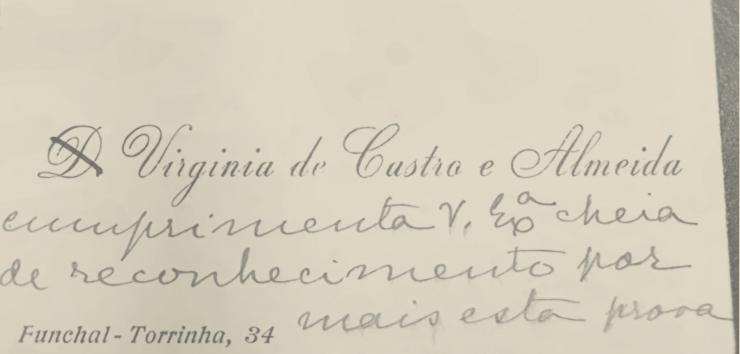 D Virginia de Castro e Almeida
cumprimenta V. Exª cheia
de reconhecimento por
mais esta prova
Funchal - Torrinha, 34